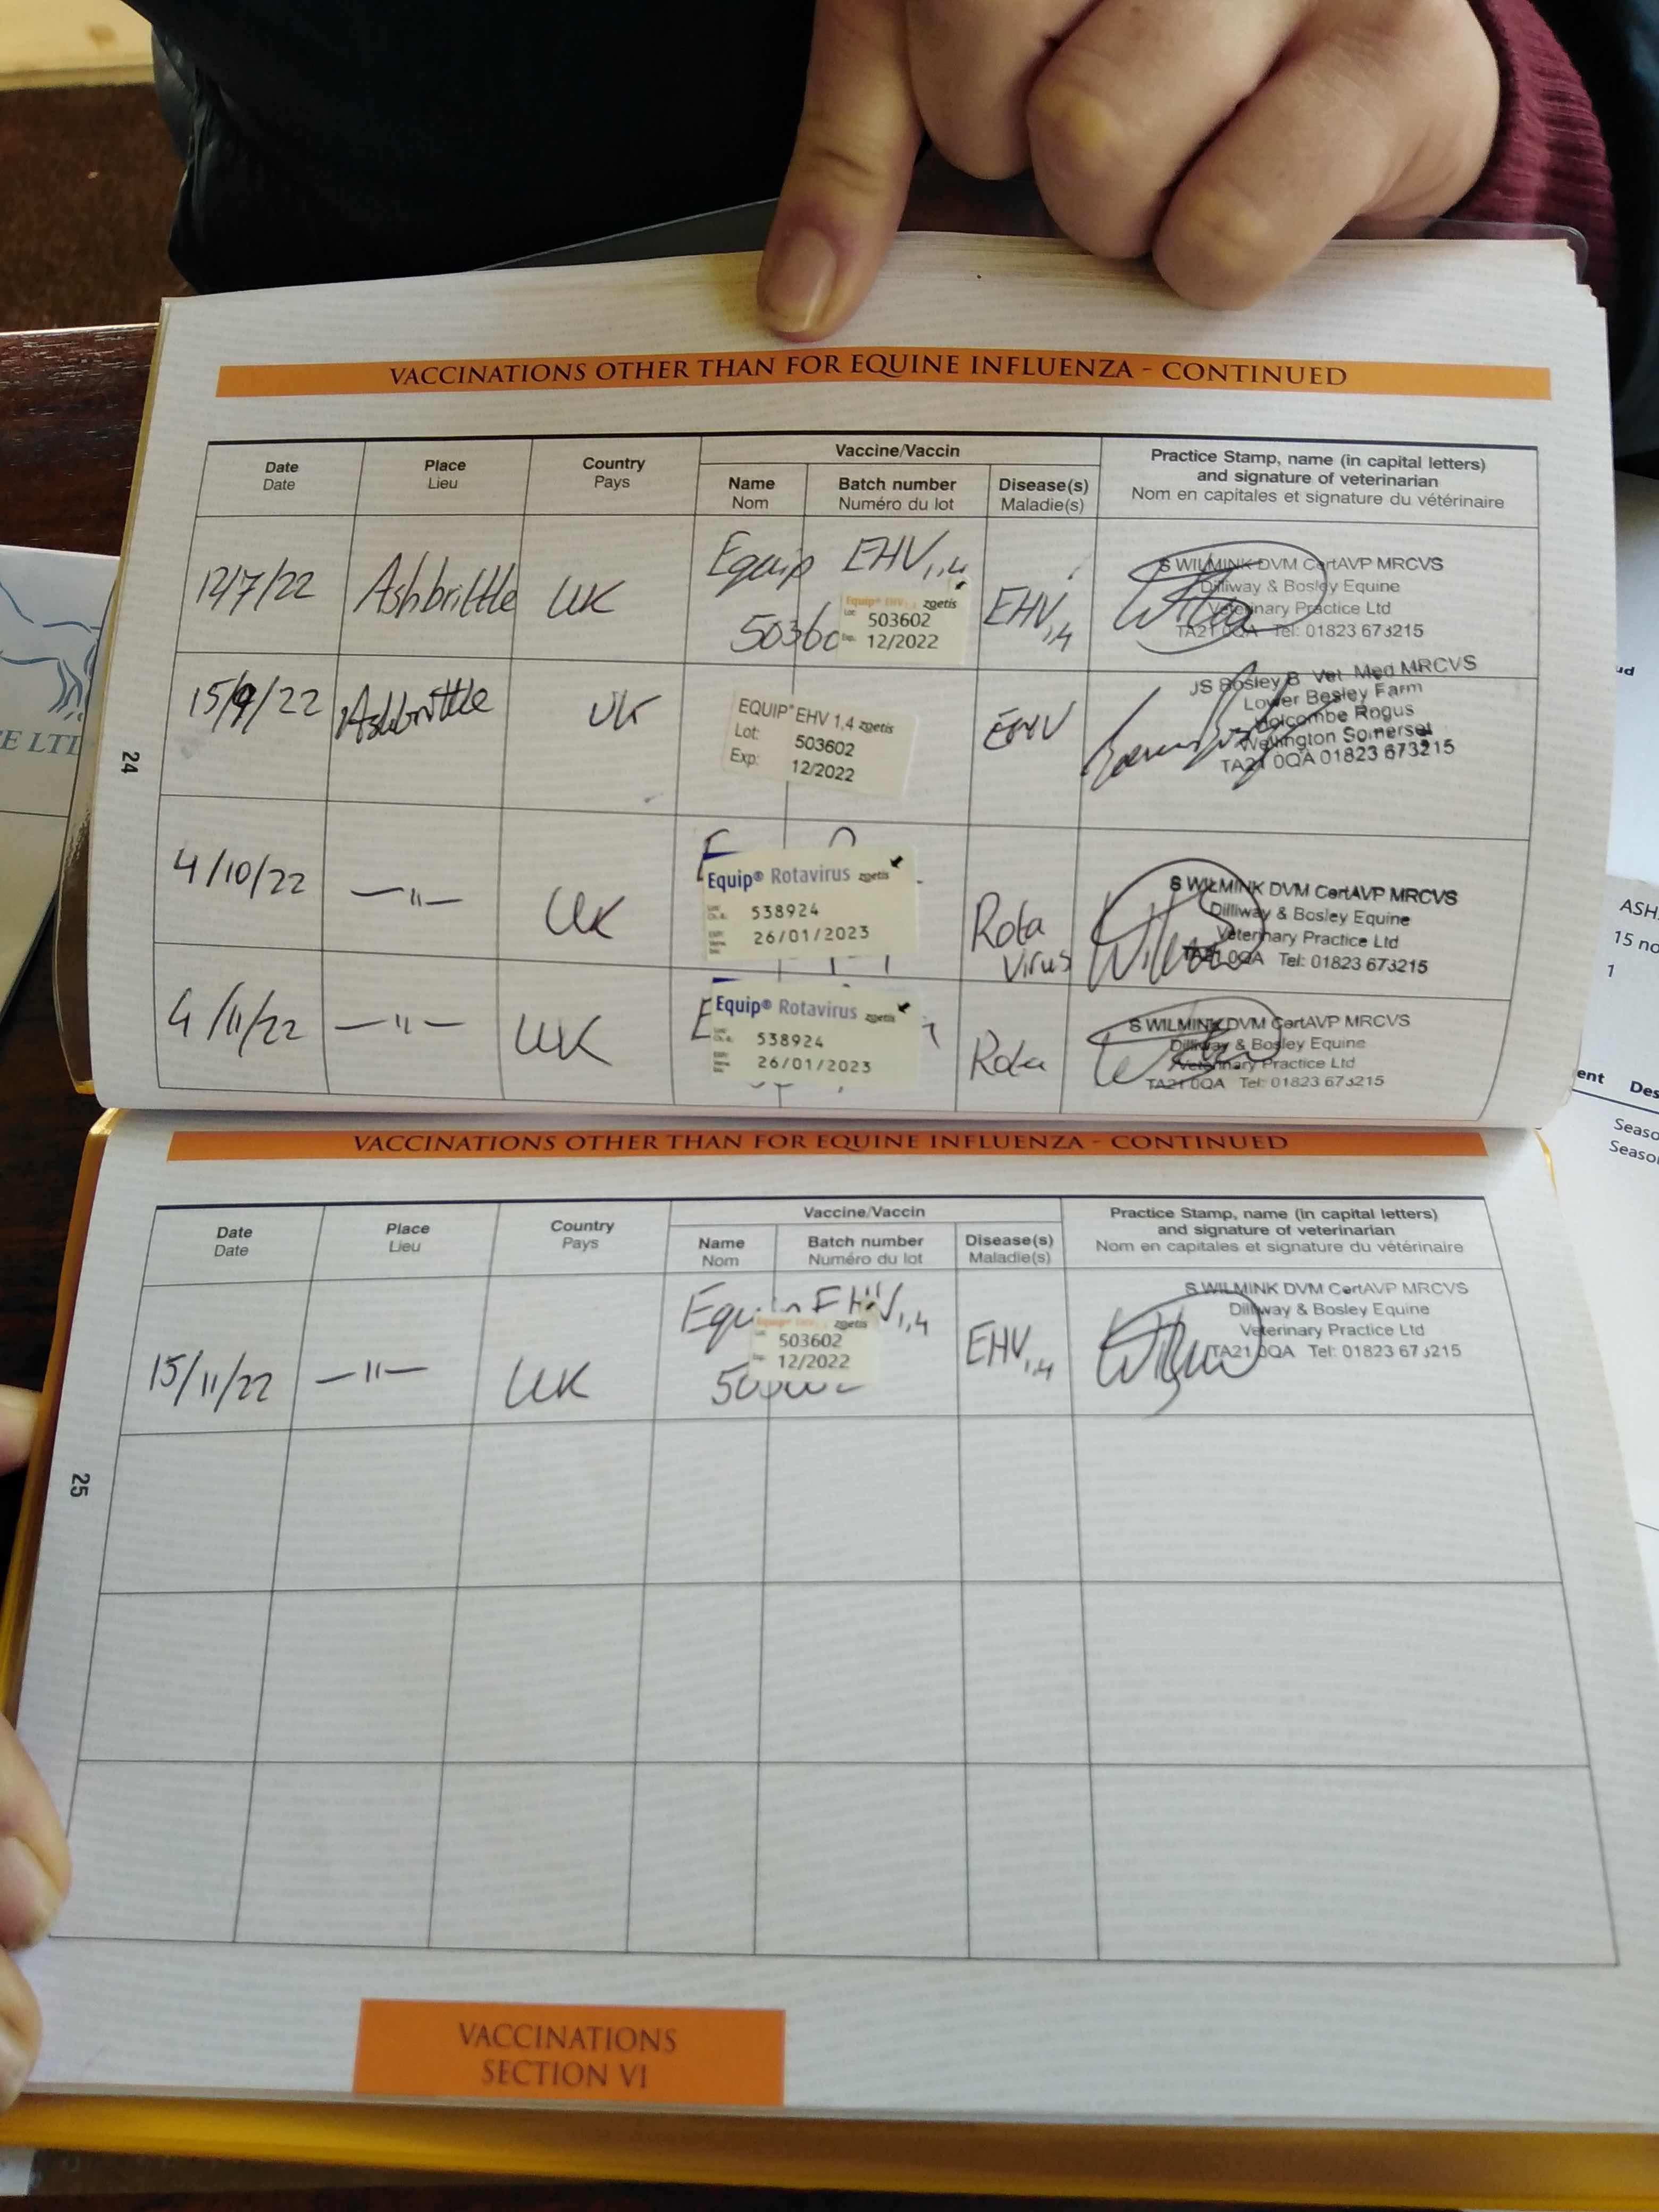 VACCINATIONS OTHER THAN FOR EQUINE INFLUENZA - CONTINUED
Date
Date
Place
Lieu
Country
Pays
Vaccine/Vaccin
Name
Nom
Batch number
Numéro du lot
Disease(s)
Maladie(s)
Practice Stamp, name (in capital letters)
and signature of veterinarian
Nom en capitales et signature du vétérinaire
12/7/22
Ashbrittle
UK
Equip EHV1,4
50360
Equip® EHV 1,4 zoetis
503602
12/2022
EHV1,4
S WILMINK DVM CertAVP MRCVS
Dilliway & Bosley Equine
Veterinary Practice Ltd
TA21 0QA Tel: 01823 673215
15/9/22
Ashbrittle
UK
EQUIP® EHV 1,4 zoetis
Lot: 503602
Exp: 12/2022
EHV
JS Bosley B Vet Med MRCVS
Lower Besley Farm
Holcombe Rogus
Wellington Somerset
TA21 0QA 01823 673215
4/10/22
—"—
UK
Equip® Rotavirus zoetis
538924
26/01/2023
Rota
Virus
S WILMINK DVM CertAVP MRCVS
Dilliway & Bosley Equine
Veterinary Practice Ltd
TA21 0QA Tel: 01823 673215
4/11/22
—"—
UK
Equip® Rotavirus zoetis
538924
26/01/2023
Rota
S WILMINK DVM CertAVP MRCVS
Dilliway & Bosley Equine
Veterinary Practice Ltd
TA21 0QA Tel: 01823 673215
24
VACCINATIONS OTHER THAN FOR EQUINE INFLUENZA - CONTINUED
Date
Date
Place
Lieu
Country
Pays
Vaccine/Vaccin
Name
Nom
Batch number
Numéro du lot
Disease(s)
Maladie(s)
Practice Stamp, name (in capital letters)
and signature of veterinarian
Nom en capitales et signature du vétérinaire
15/11/22
—"—
UK
Equip EHV1,4
zoetis
503602
12/2022
EHV1,4
S WILMINK DVM CertAVP MRCVS
Dilliway & Bosley Equine
Veterinary Practice Ltd
TA21 0QA Tel: 01823 673215
25
VACCINATIONS
SECTION VI
E LTD
ASH
15 no
1
ent Des
Seaso
Seaso